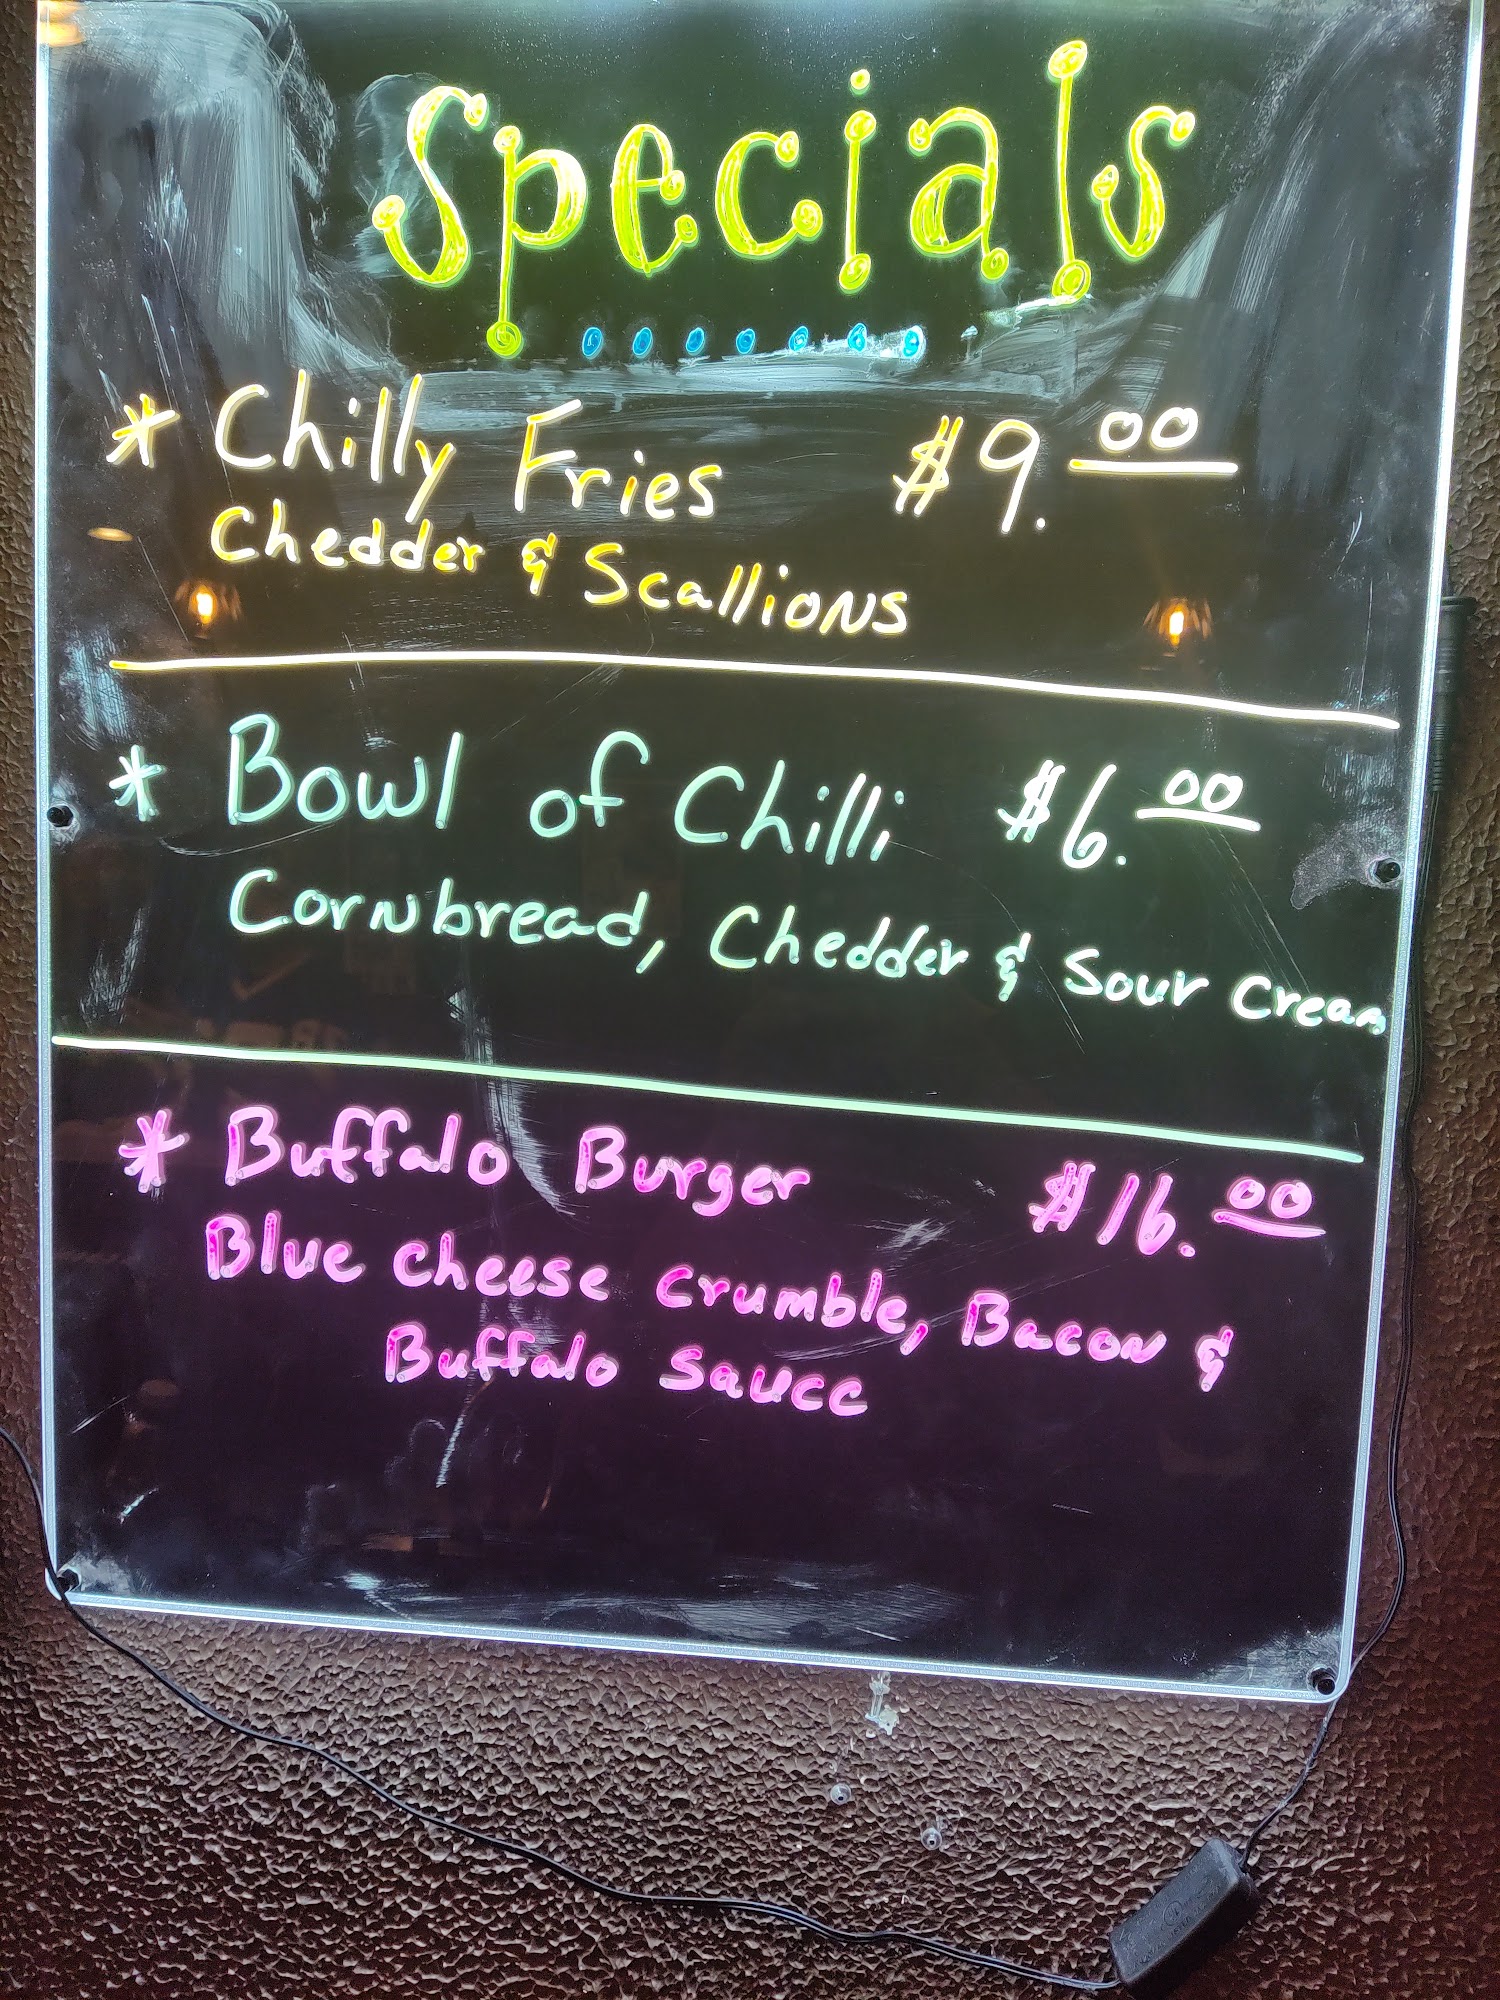 Specials
* Chilly Fries $9.00
Chedder & Scallions
* Bowl of Chilli $6.00
Cornbread, Chedder & Sour Cream
* Buffalo Burger $16.00
Blue cheese crumble, Bacon &
Buffalo Sauce